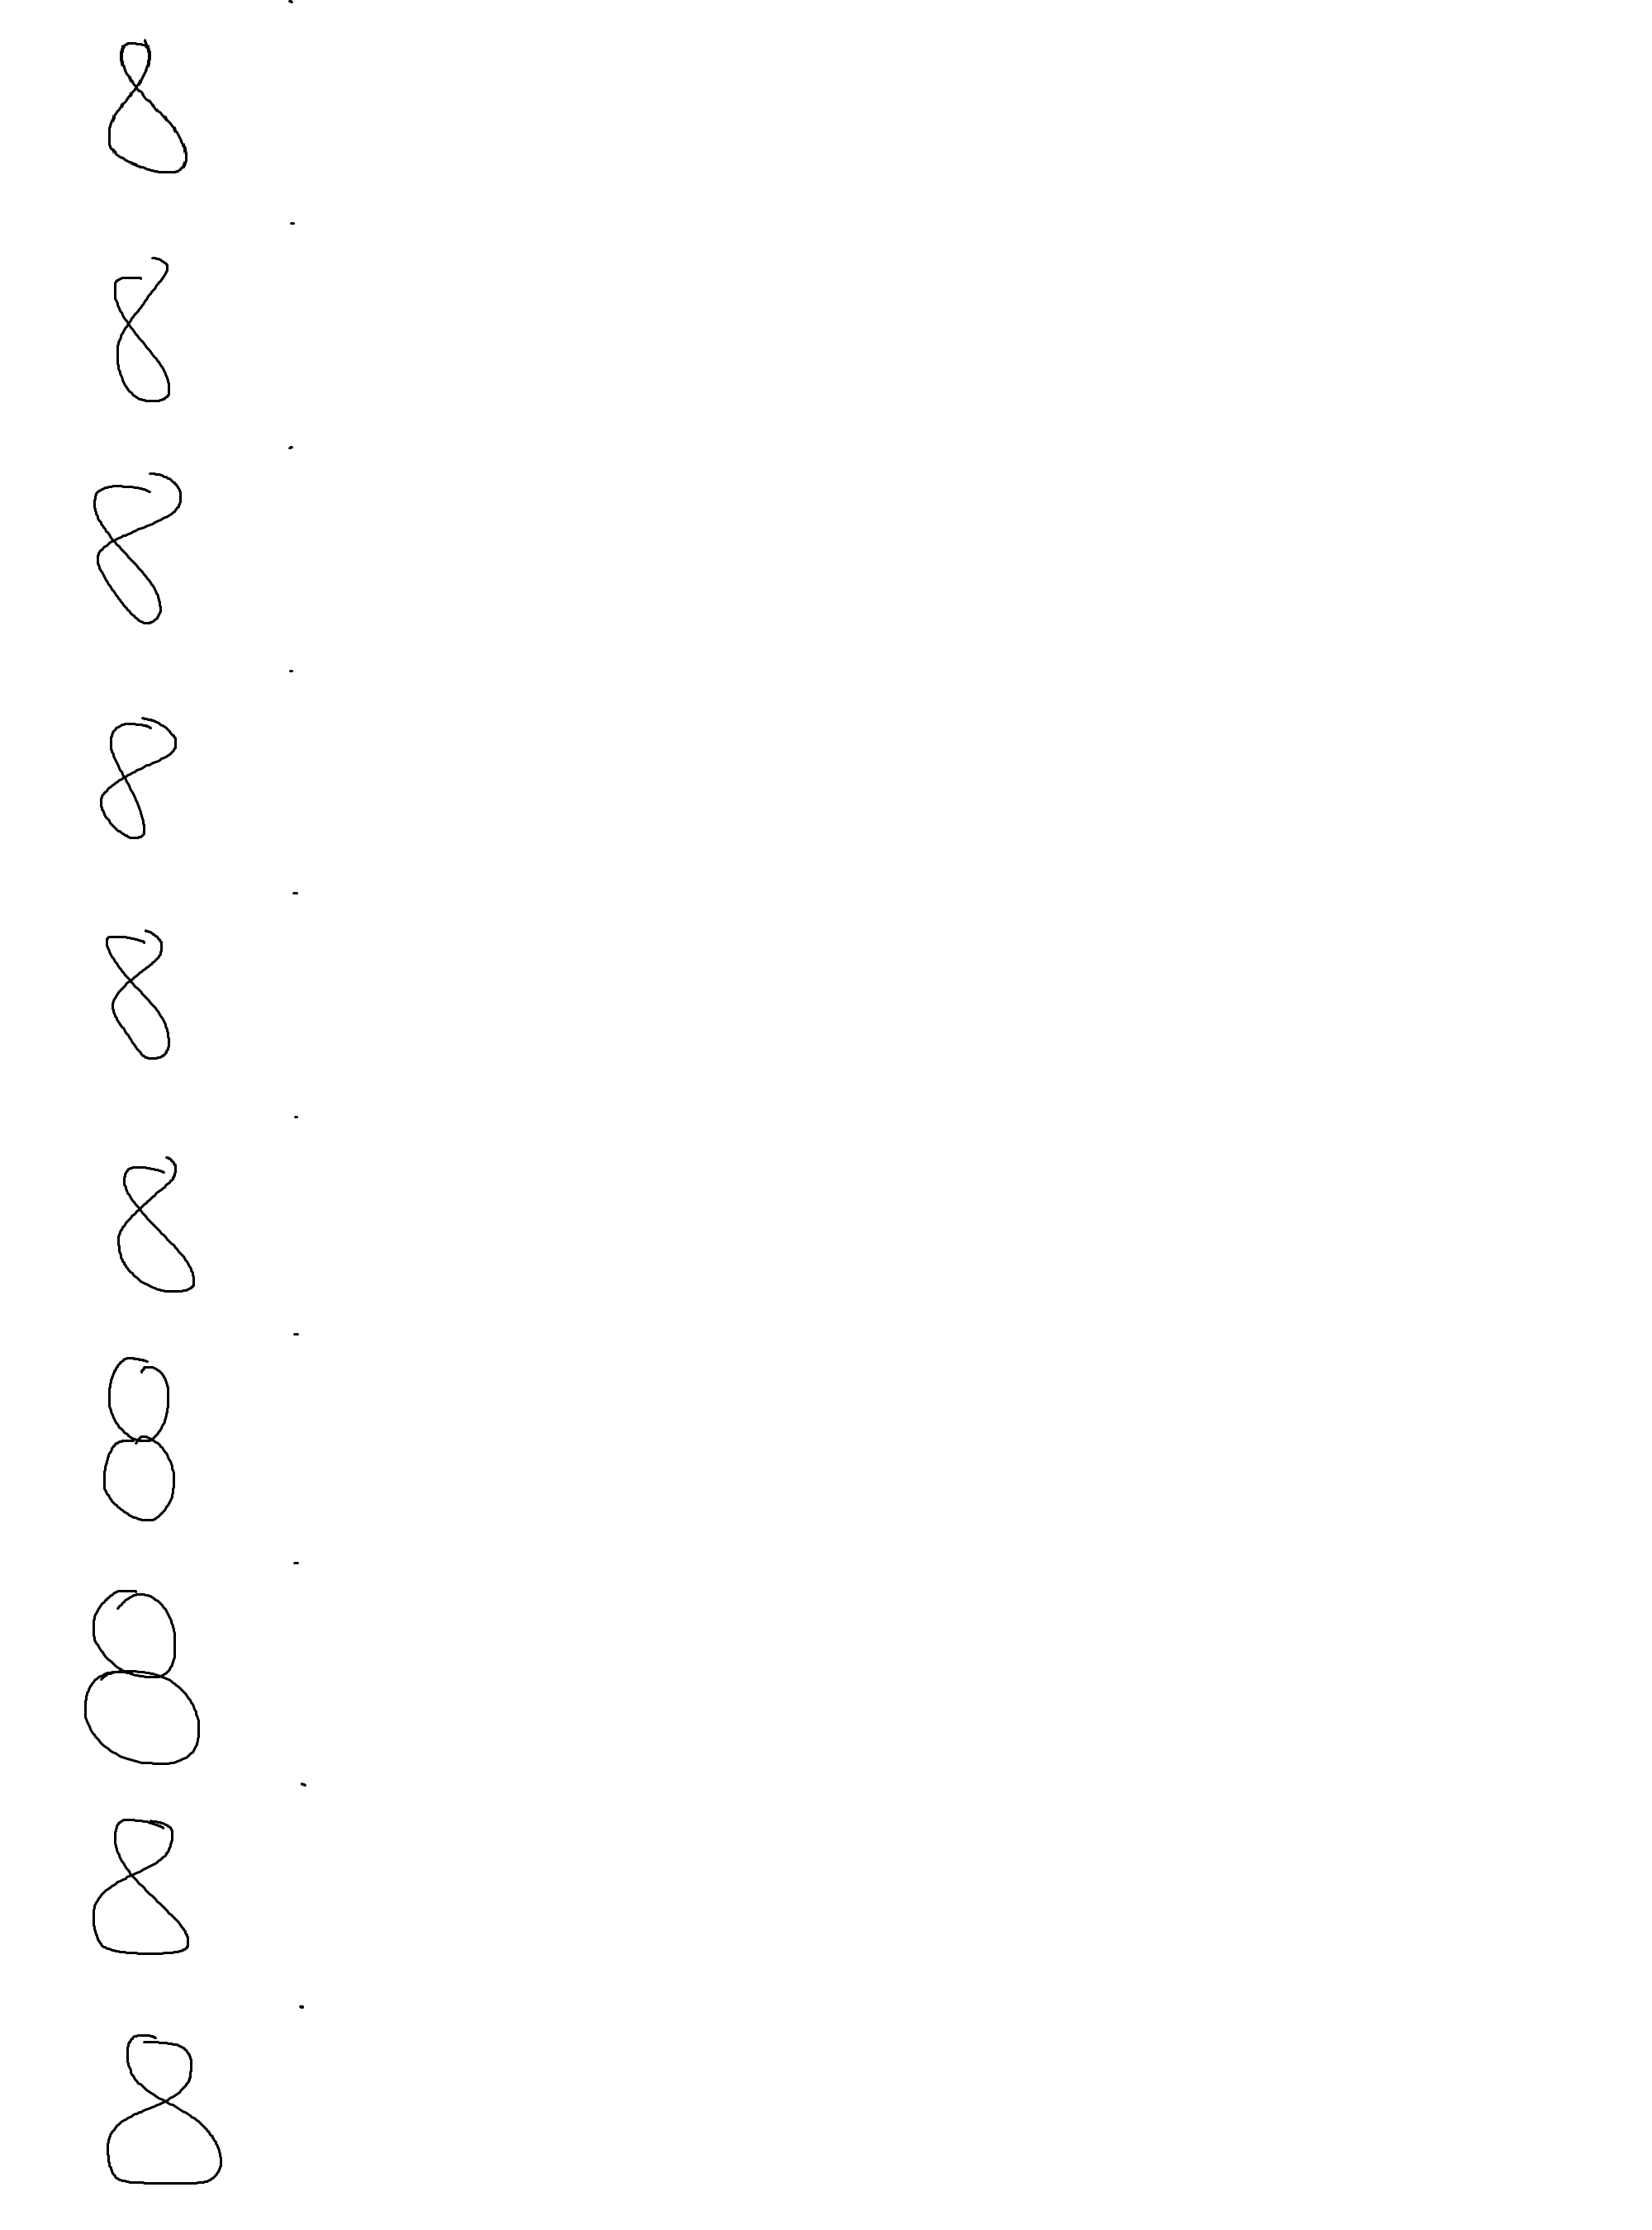 8
8
8
8
8
8
8
8
8
8